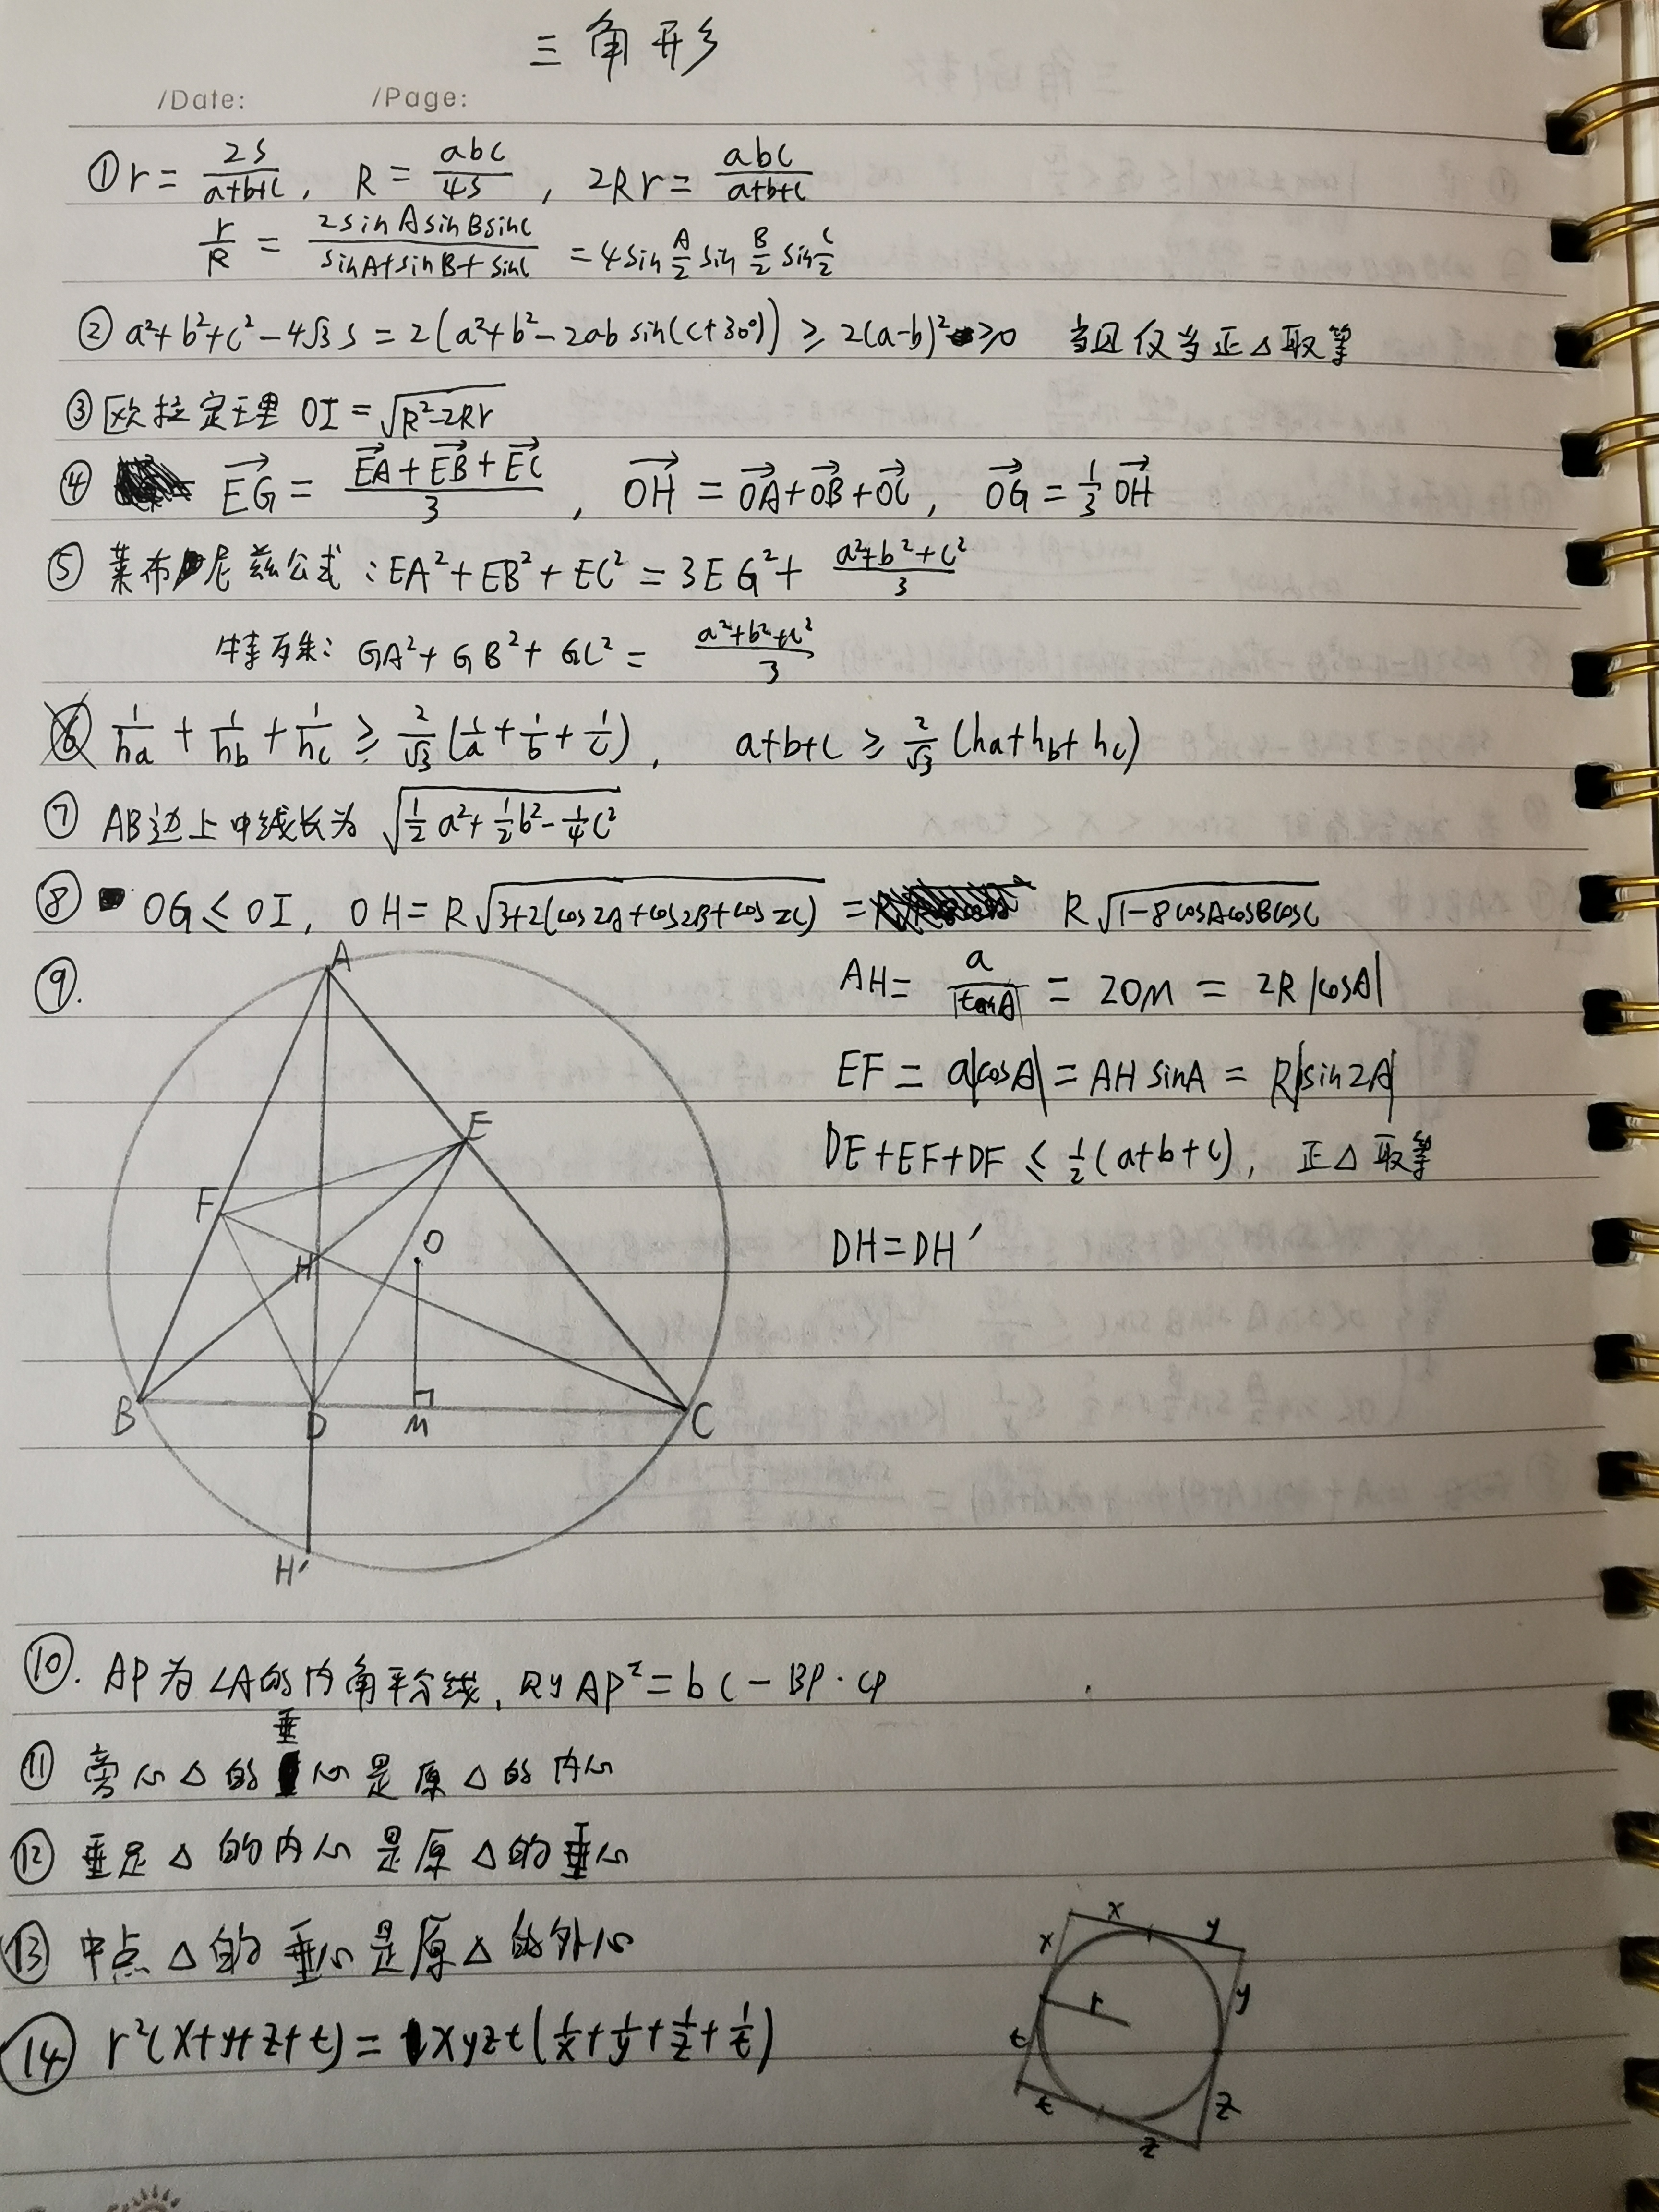 三角形
/Date: /Page:
① r = 2S/(a+b+c), R = abc/4S, 2Rr = abc/(a+b+c)
r/R = 2sinAsinBsinC/(sinA+sinB+sinC) = 4sin A/2 sin B/2 sin C/2
② a²+b²+c²-4√3 S = 2(a²+b²-2ab sin(C+30°)) ≥ 2(a-b)² ≥0 当且仅当正△取等
③ 欧拉定理 OI = √(R²-2Rr)
④ →EG = (→EA + →EB + →EC)/3, →OH = →OA+→OB+→OC, →OG = 1/3 →OH
⑤ 莱布尼兹公式:EA²+EB²+EC² = 3EG²+ (a²+b²+c²)/3
特殊: GA²+GB²+GC² = (a²+b²+c²)/3
⑥ 1/ha + 1/hb + 1/hc ≥ 2/√3 (1/a+1/b+1/c), a+b+c ≥ 2/√3 (ha+hb+hc)
⑦ AB边上中线长为 √(1/2 a²+1/2 b²-1/4 c²)
⑧ OG ≤ OI, OH = R√(3+2(cos2A+cos2B+cos2C)) = R√(1-8cosAcosBcosC)
⑨.
A
E
F
H
O
B
D
M
C
H′
AH = a/|tanA| = 2OM = 2R|cosA|
EF = a|cosA| = AH sinA = R|sin2A|
DE+EF+DF ≤ 1/2(a+b+c), 正△取等
DH=DH′
⑩. AP为∠A的内角平分线, 则AP²=bc-BP·CP
⑪ 旁心△的垂心是原△的内心
⑫ 垂足△的内心是原△的垂心
⑬ 中点△的垂心是原△的外心
⑭ r²(x+y+z+t) = xyzt(1/x+1/y+1/z+1/t)
x
y
x
y
r
t
z
t
z